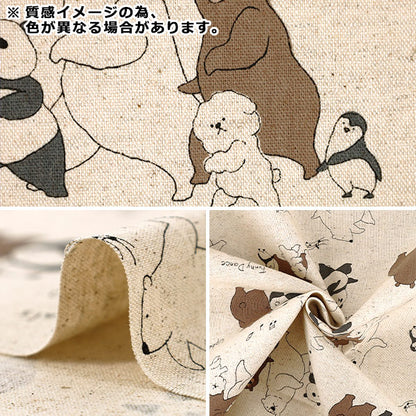 ※ 質感イメージの為、
色が異なる場合があります。
Funky Dance